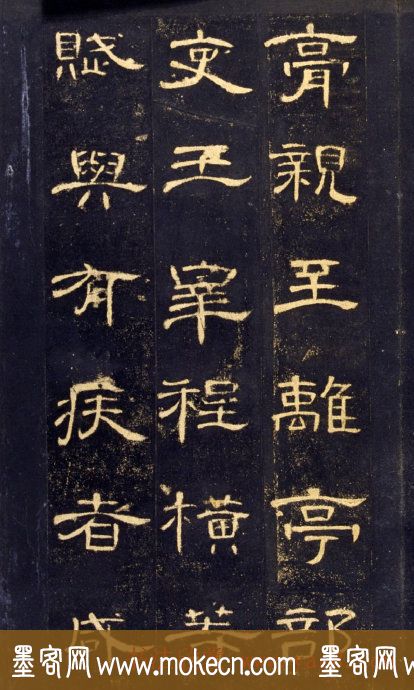 膏親至離亭部
吏王宰程橫等
賦與有疾者咸
墨客网 www.mokecn.com 墨客网